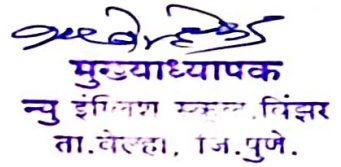 मुख्याध्यापक
न्यु इंग्लिश स्कुल, विंझर
ता. वेल्हा, जि. पुणे.